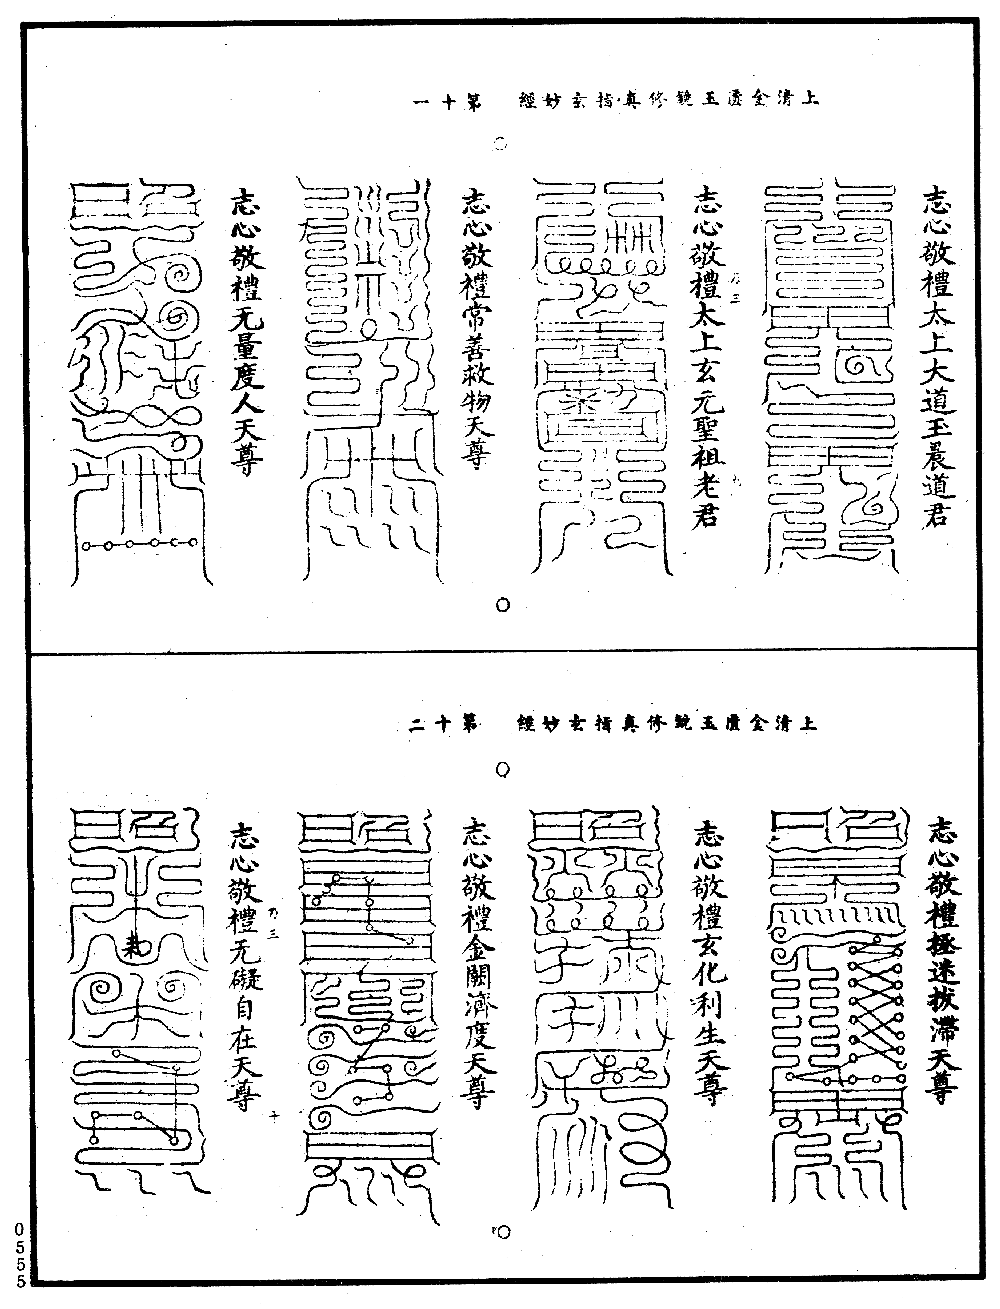 上清金匱玉鏡修真指玄妙經　第十一
志心敬禮太上大道玉晨道君
志心敬禮太上玄元聖祖老君
乃三
九
志心敬禮常善救物天尊
志心敬禮无量度人天尊
上清金匱玉鏡修真指玄妙經　第十二
志心敬禮拯迷拔滯天尊
志心敬禮玄化利生天尊
志心敬禮金闕濟度天尊
志心敬禮无礙自在天尊
乃三
十
0555